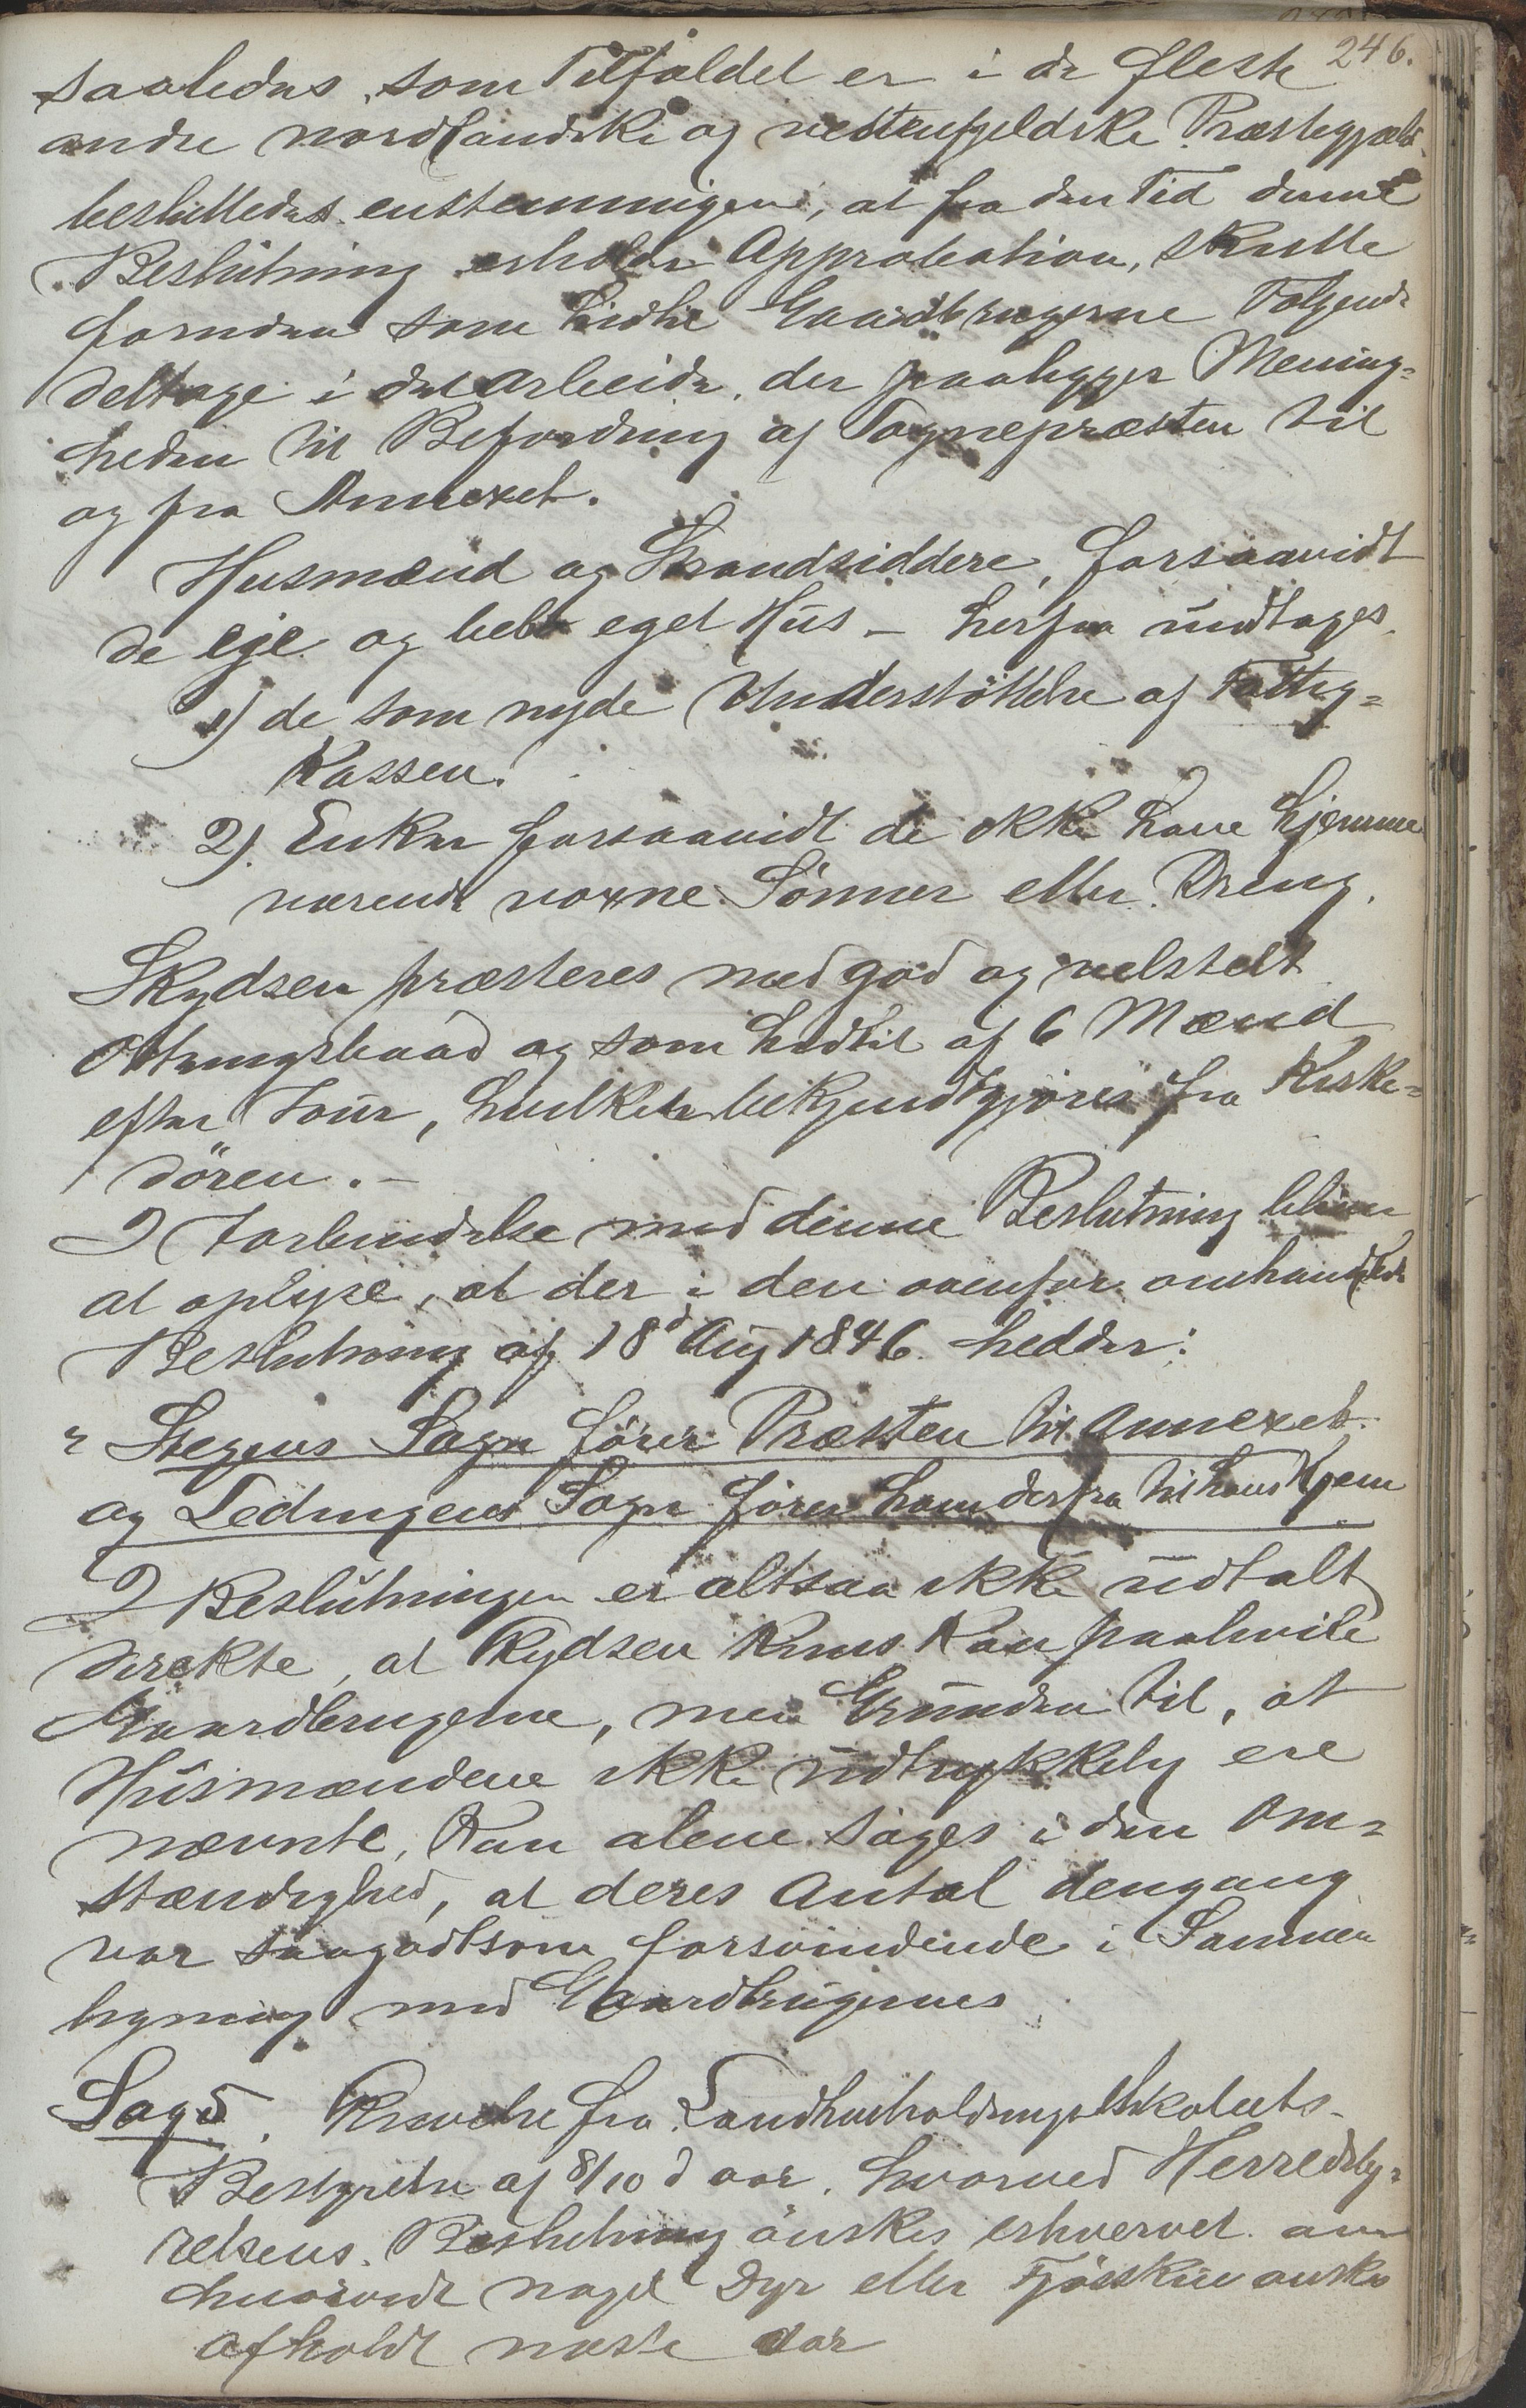 246.
saaledes som Tilfældet er i de fleste
andre nordlandske og vestenfjeldske Præstegjæld
besluttedes enstemmigen, at fra den Tid denne
Beslutning erholder Approbation, skulle
foruden som hidtil Gaardbrugerne Følgende
deltage i det Arbeide, der paaligger Menig-
heden til Befordring af Sognepræsten til
og fra Annexet.
Husmænd og Strandsiddere, forsaavidt
de eje og bebo eget Hus – herfra undtages
1) de som nyde Understöttelse af Fattig-
Kassen.
2). Enker forsaavidt de ikke have hjemme
værende voxne Sönner eller Dreng.
Skydsen præsteres med god og velstelt
Ottringsbaad og som hidtil af 6 Mænd
efter Tour, hvilket bekjendtgjöres fra Kirke-
dören. –
I Forbindelse med denne Beslutning bliver
at oplyse, at der i den ovenfor omhandlede
Beslutning af 18d Aug 1846 hedder:
"Stegens Sogn förer Præsten til Annexet
og Ledingens Sogn förer ham derfra til hans Hjem
I Beslutningen er altsaa ikke udtalt
direkte, at Skydsen kun kan paahvile
Gaardbrugerne, men Grunden til, at
Husmændene ikke udtrykkelig ere
nævnte, kan alene söges i den Om-
stændighed, at deres Antal dengang
var saagodtsom forsvindende i Sammen
ligning med Gaardbrugernes
Sag 5. Skrivelse fra Landhusholdningsselskabets
Bestyrelse af 8/10 d aar, hvorved Herredsby-
relsens Beslutning önskes erhvervet om
hvorvidt noget Dyr eller Fjösskue önskes
afholdt næste Aar